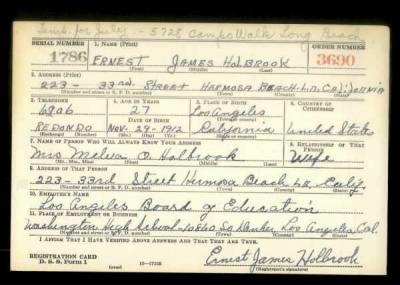 Temp. for July - 5728 Campo Walk Long Beach
SERIAL NUMBER 1. Name (Print) ORDER NUMBER
1786 ERNEST JAMES HOLBROOK 3690
(First) (Middle) (Last)
2. ADDRESS (Print)
223 - 33rd STREET HERMOSA BEACH L.A. CALIFORNIA
(Number and street or R. F. D. number) (Town) (County) (State)
3. TELEPHONE 4. AGE IN YEARS 5. PLACE OF BIRTH 6. COUNTRY OF CITIZENSHIP
6906 27 Los Angeles
DATE OF BIRTH
REDONDO NOV. - 29 - 1912 California United States
(Exchange) (Number) (Mo.) (Day) (Yr.) (State or country)
7. NAME OF PERSON WHO WILL ALWAYS KNOW YOUR ADDRESS 8. RELATIONSHIP OF THAT PERSON
Mrs Melva O. Holbrook Wife
(Mr., Mrs., Miss) (First) (Middle) (Last)
9. ADDRESS OF THAT PERSON
223 - 33rd Street Hermosa Beach L.A. Calif.
(Number and street or R. F. D. number) (Town) (County) (State)
10. EMPLOYER'S NAME
Los Angeles Board of Education
11. PLACE OF EMPLOYMENT OR BUSINESS
Washington High School - 10860 So. Denker, Los Angeles, Cal.
(Number and street or R. F. D. number) (Town) (County) (State)
I AFFIRM THAT I HAVE VERIFIED ABOVE ANSWERS AND THAT THEY ARE TRUE.
REGISTRATION CARD
D. S. S. Form 1 16-17105 Ernest James Holbrook
(Registrant's signature)